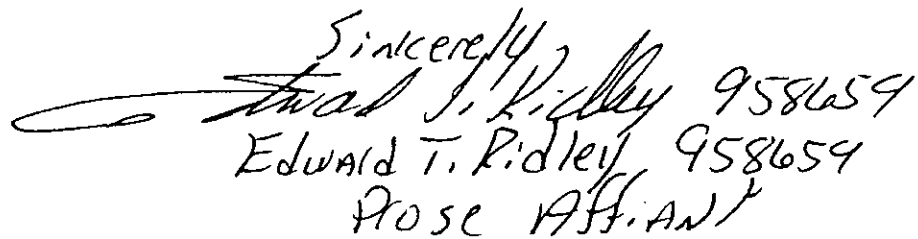 Sincerely
Edward T. Ridley 958659
Edward T. Ridley 958659
Prose Affiant